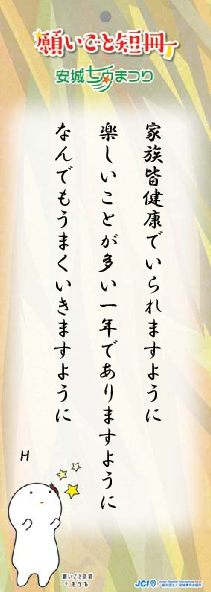 願いごと短冊
安城七夕まつり
家族皆健康でいられますように
楽しいことが多い一年でありますように
なんでもうまくいきますように
H
願いごと短冊
JCI